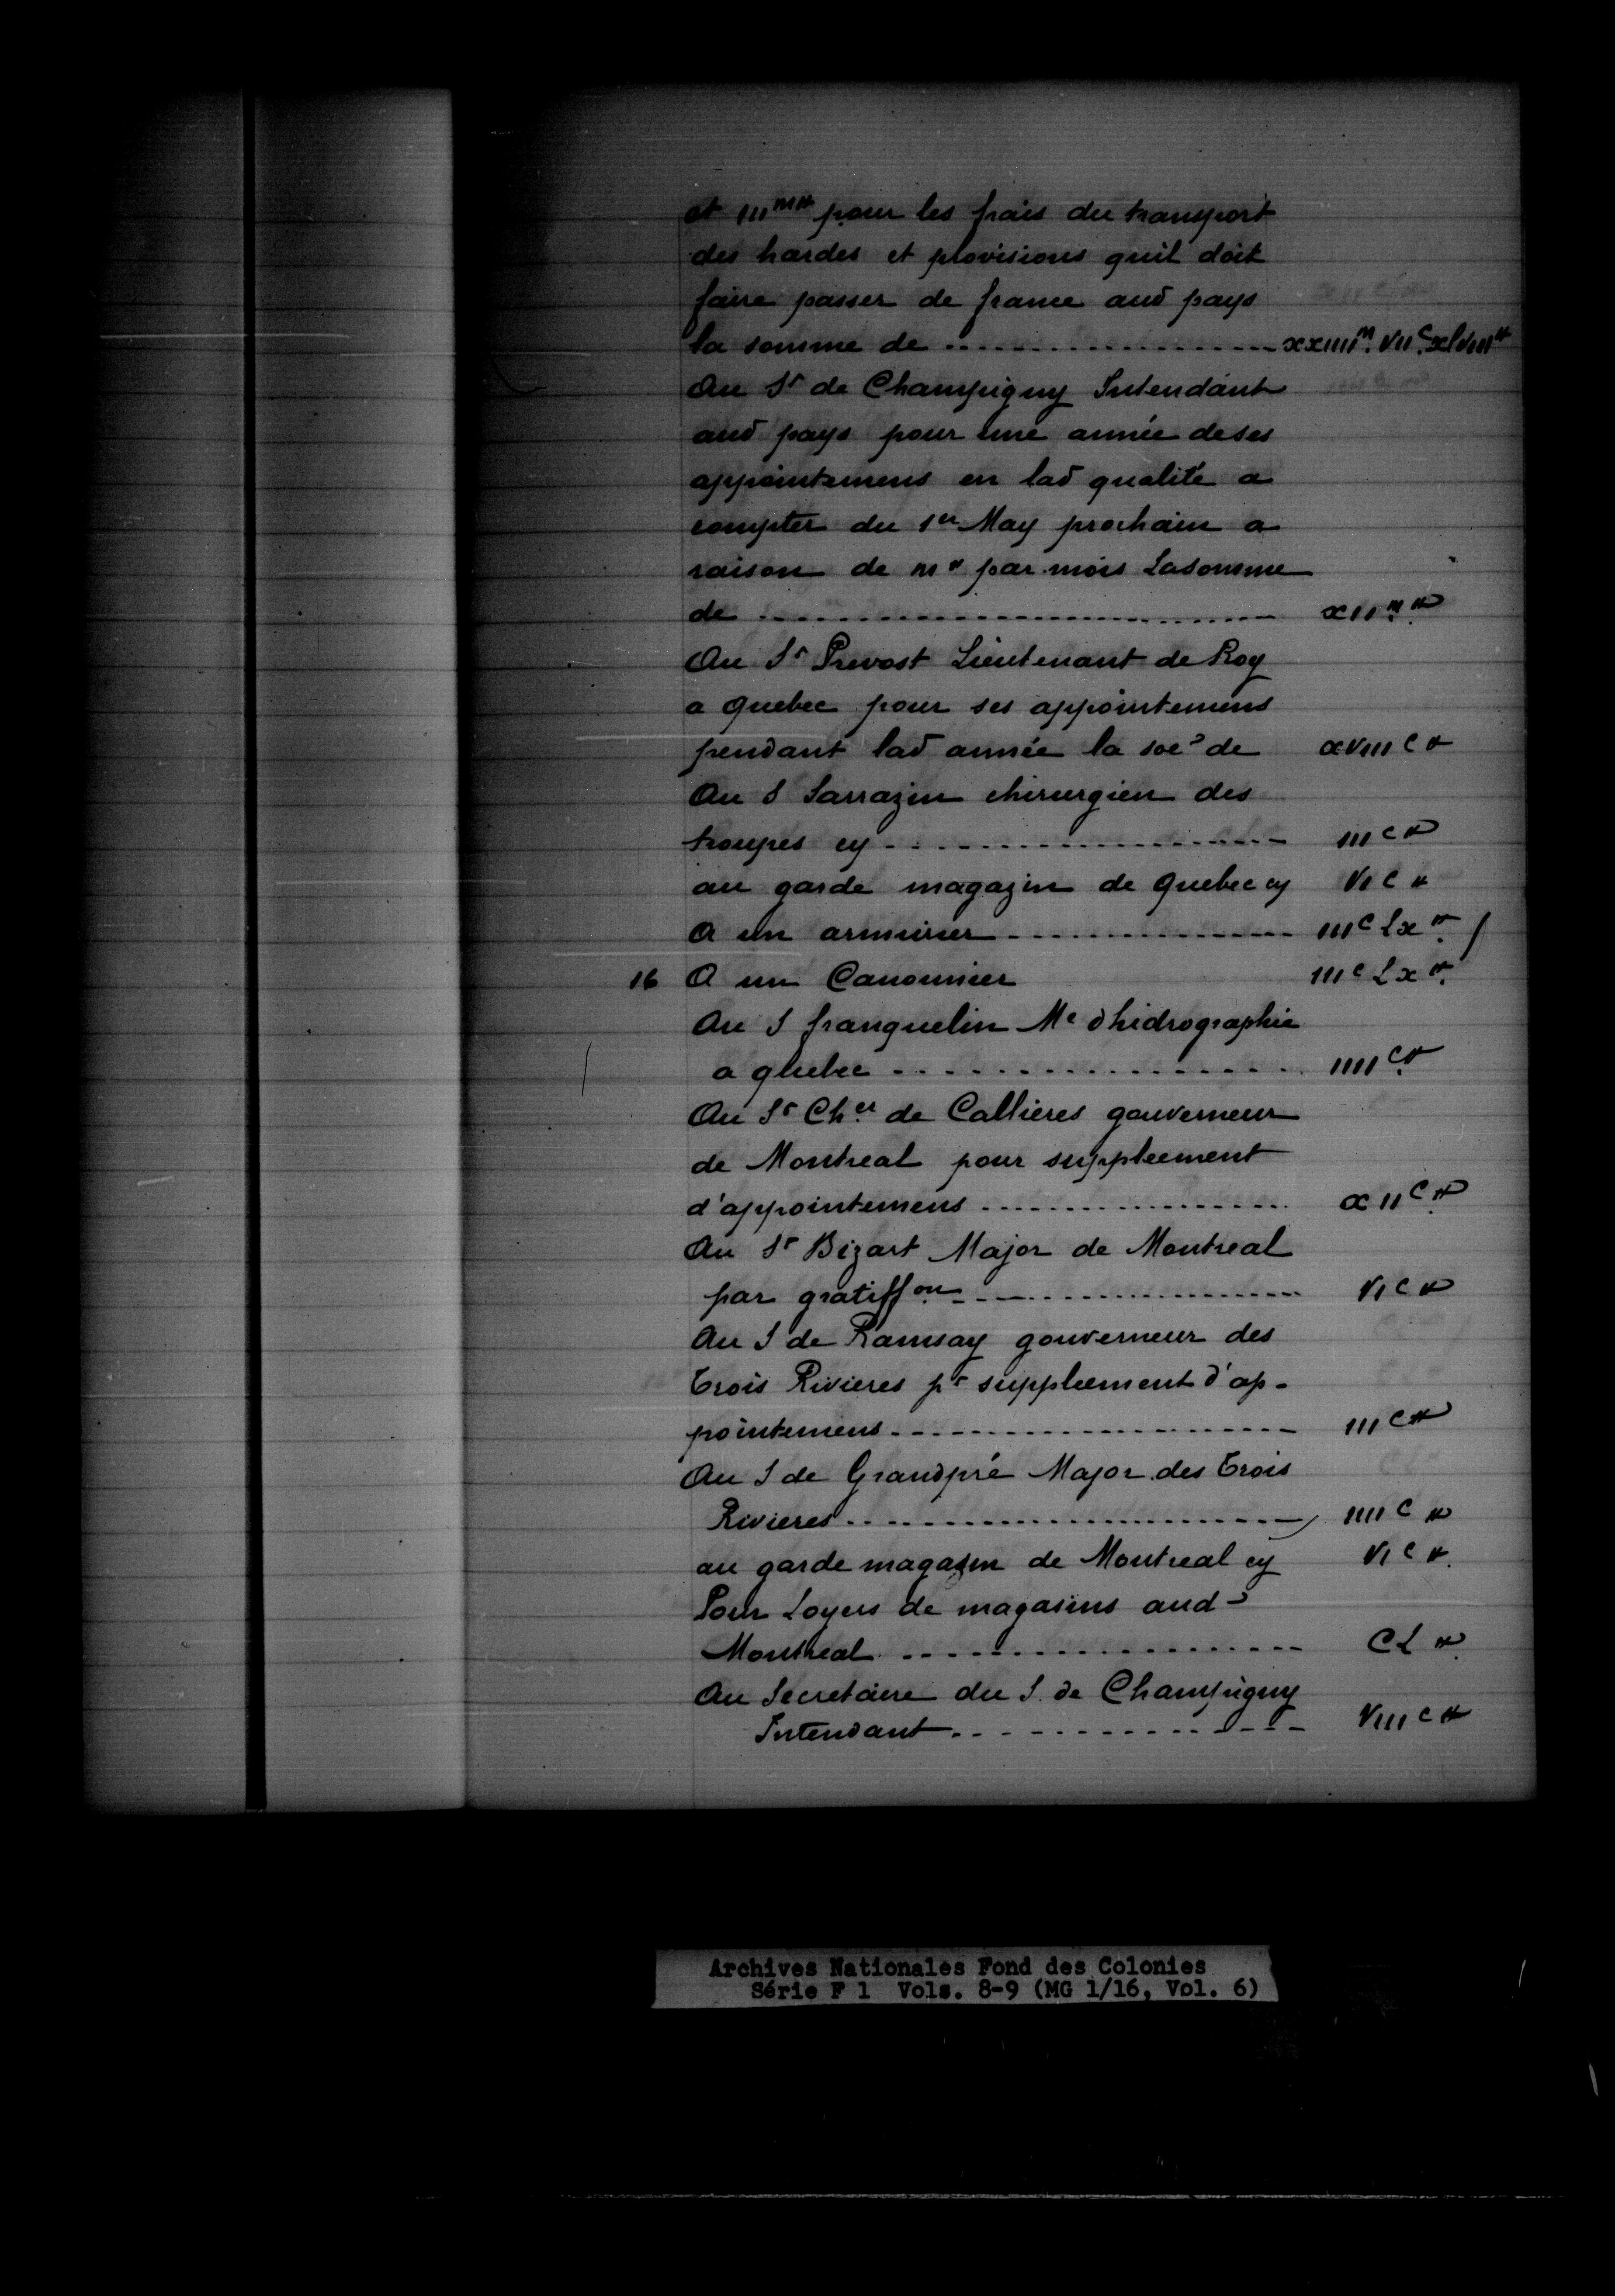 et III^m# pour les frais du transport
des hardes et provisions quil doit
faire passer de france aud pays
la somme de .................. xxIIII^m. VII^c. xlVIII#
Au S^r de Champigny Intendant
aud pays pour une année de ses
appointemens en lad qualité a
compter du 1^er May prochain a
raison de m# par mois La somme
de .................. xII^m.#
Au S^r Prevost Lieutenant de Roy
a quebec pour ses appointemens
pendant lad année la soe^e de xVIII^c #
Au S Sarrazin chirurgien des
troupes cy .................. III^c #
au garde magazin de quebec cy VI^c #
A un armurier .................. III^c Lx #
16 A un Canonnier III^c Lx #
Au S franquelin M^e d'hidrographie
a quebec .................. IIII^c.#
Au S^r Ch^er de Callieres gouverneur
de Montreal pour suppleement
d'appointemens .................. xII^c #
Au S^r Bizart Major de Montreal
par gratiff^on .................. VI^c #
Au S de Ramsay gouverneur des
Trois Rivieres p^r suppleement d'ap-
pointemens .................. III^c #
Au S de Grandpré Major des Trois
Rivieres .................. IIII^c #
au garde magasin de Montreal cy VI^c #.
Pour Loyers de magasins aud
Montreal .................. CL #
Au Secretaire du S. de Champigny
Intendant .................. VIII^c #
Archives Nationales Fond des Colonies
Série F 1 Vols. 8-9 (MG 1/16, Vol. 6)